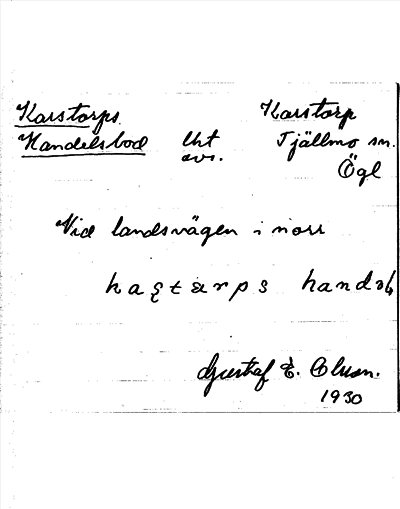 Karstorps Karstorp
Handelsbod Uht Tjällmo sn.
avs. Ögl
Vid landsvägen i norr
handəls
Gustaf E. Olsson.
1930